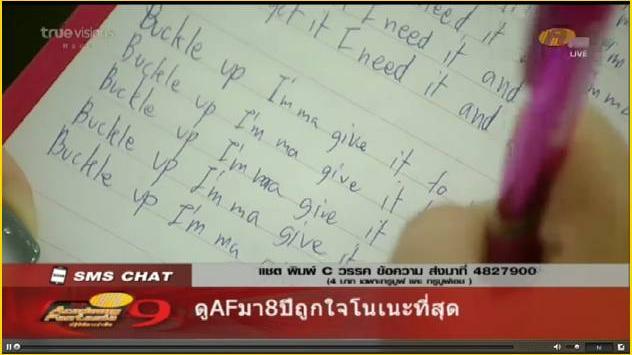 truevisions
LIVE
get it I need it and
I need it and
Buckle up I'm ma give it to
Buckle up I'm ma give it
Buckle up I'm ma give it
Buckle up I'm ma give it
Buckle up I'm ma
SMS CHAT
แชต พิมพ์ C วรรค ข้อความ ส่งมาที่ 4827900
(4 บาท เฉพาะทรูมูฟ และ ทรูมูฟเอช)
Academy Fantasia 9
ดูAFมา8ปีถูกใจโนเนะที่สุด